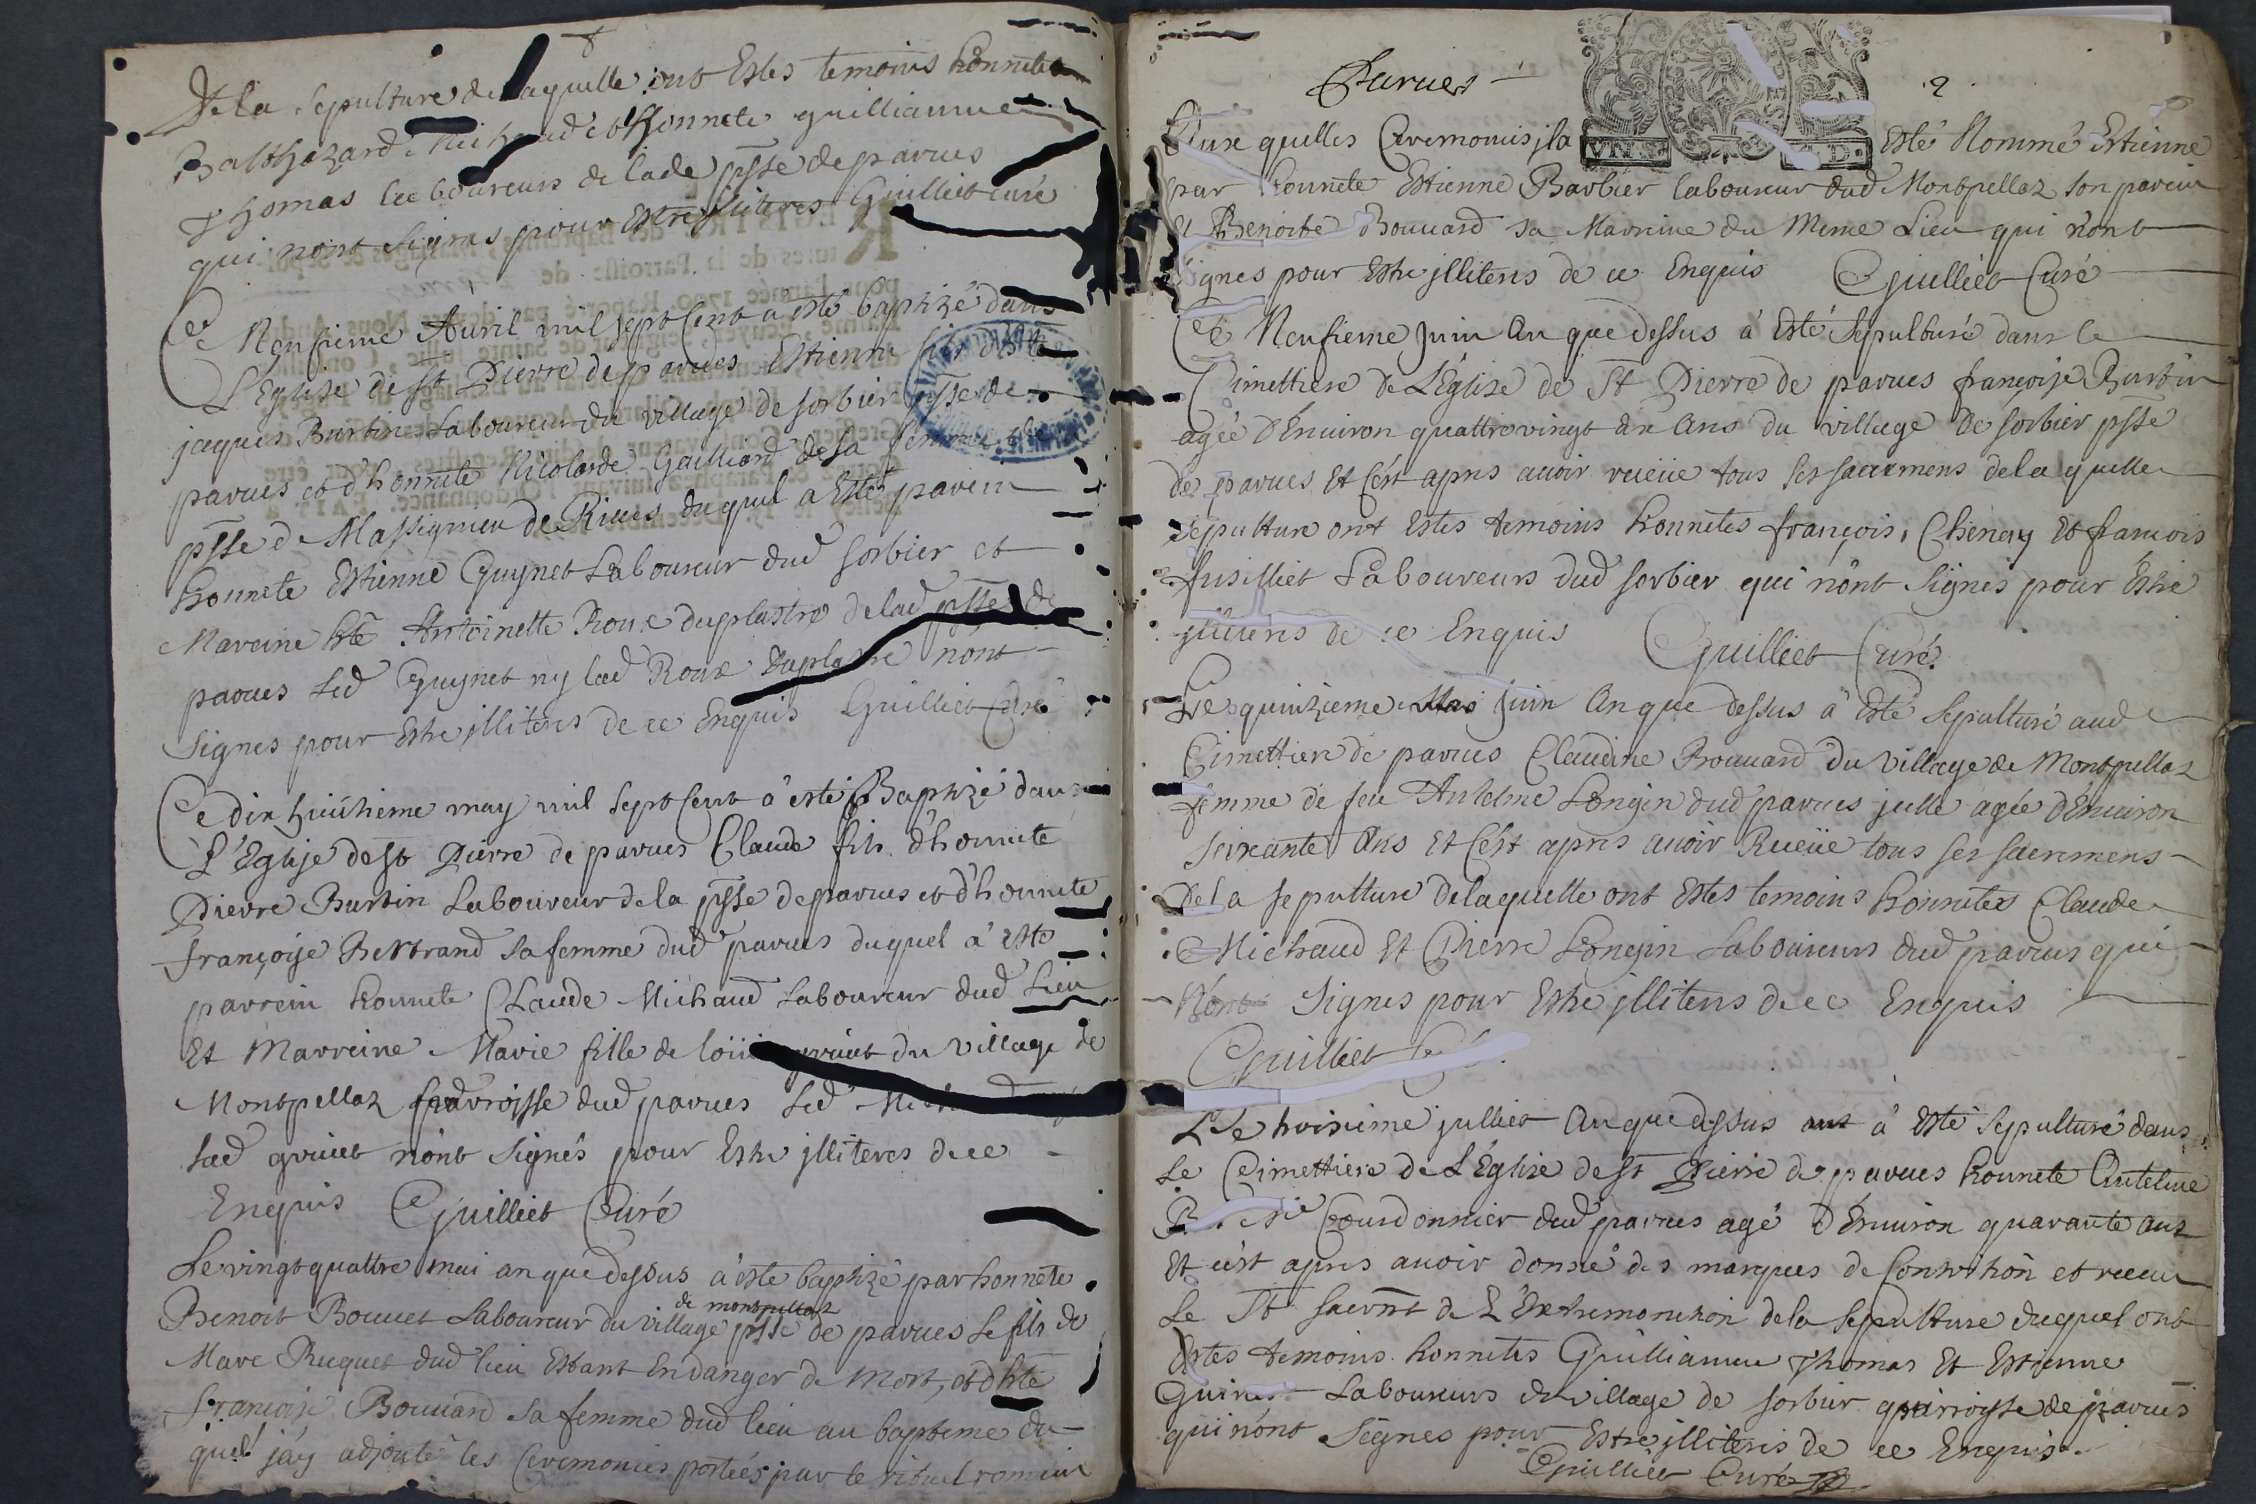 De la sepulture de laquelle ont Estes temoins honnetes
Balthazard Michaud et honnete guillianme
Thomas laboureurs de lade psse de parves
qui nont signes pour Estre jlliteres Guilliet curé
Ce Neufieme Auril mil sept Cent a esté baptizé dans
L'Eglise de st Pierre de parves Estienne fils d'hte
jaques Burtin Laboureur du village de sorbier psse de
parves et d'honnete Nicolarde Gailliard de sa femme
psse de Massignieu de Rives duquel a Esté parein
honnete Estienne Guynet Laboureur dud sorbier et
Mareine hte Antoinette Roux duplastre delad psse de
parves Led Guynet ny lad Roux duplastre nont
signes pour Estre jlliteres de ce Enquis Guilliet Curé
Ce dix huitieme may mil sept Cent à esté Baptizé dans
L'Eglise de st Pierre de parves Claude fils d'honnete
Pierre Burtin Laboureur de la psse de parves et d'honnete
françoise Bertrand sa femme dud parves duquel à esté
parrein honnete Claude Michaud Laboureur dud Lieu
Et Marreine Marie fille de du village de
Montpellaz parroisse dud parves Led
Lad n'ont signés pour Estre jlliteres de ce
Enquis Guilliet Curé
Le vingt quattre mai an que dessus à este baptizé par honnete
de montpellaz
Benoit Bouuet Laboureur du village psse de parves Le fils de
Marc Ruquet dud lieu Estant En danger de Mort, et d'hte
françoise Bouuard sa femme dud lieu au bapteme du
quel j'ay adjouté les Ceremonies portées par le rituel romain
Parves
2
Auxquelles Ceremonies jl a Esté Nommé Estienne
par honnete Estienne Barbier laboureur dud Montpellaz son parein
Et Benoite Bouuard sa Marreine du Meme Lieu qui nont
signes pour Estre jlliteres de ce Enquis Guilliet Curé
Ce Neufieme Juin An que dessus à Esté Sepulturé dans le
Cimettiere de L'Eglise de St Pierre de parves françoise Burtin
agée d'Enuiron quattrevingt dix Ans du village de sorbier psse
de parves Et C'est apres auoir receüe tous ses sacremens de laquelle
sepulture ont Estes temoins honnetes françois Chenay Et francois
fusilliet Laboureurs dud sorbier qui n'ont signés pour Estre
jlliteres de ce Enquis Guilliet Curé
Le quinzieme Mai Juin An que dessus à Esté Sepulturé aud
Cimettiere de parves Claudine Bouuard du Village de Montpellaz
femme de feu Antelme Longin dud parves jcelle agée d'Enuiron
soixante Ans Et C'est apres auoir Receüe tous ses sacremens
De la sepulture de laquelle ont Estes temoins honnetes Claude
Michaud Et Pierre Longin Laboureurs dud parves qui
Nont signes pour Estre jlliteres de ce Enquis
Guilliet
Le troisieme julliet An que dessus à Esté Sepulturé dans
Le Cimettiere de L'Eglise de st Pierre de parves honnete Antelme
Courdonnier dud parves agé d'Enuiron quarante ans
Et c'est apres auoir donné des marques de Contrition et receu
Le St sacremt de L'Extremonction de la Sepulture duquel ont
Estes temoins honnetes Guillianme Thomas Et Estienne
Guinet Laboureurs du village de sorbier parroisse de parves
qui nont Signes pour Estre jlliteres de ce Enquis
Guilliet Curé